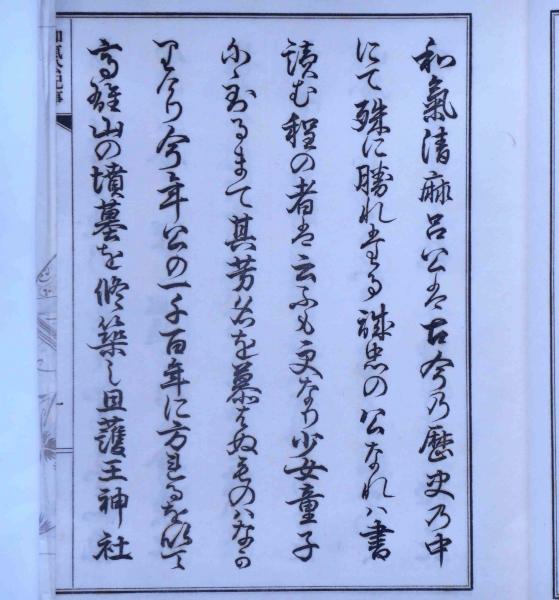 和氣清麻呂公は古今乃歴史乃中
にて殊に勝れたる誠忠の公なれハ書
讀む程の者は云ふも更なり少女童子
に到るまて其芳名を慕はぬものハなか
りけり今年公の一千百年に方れるを以て
高雄山の墳墓を修築し且護王神社